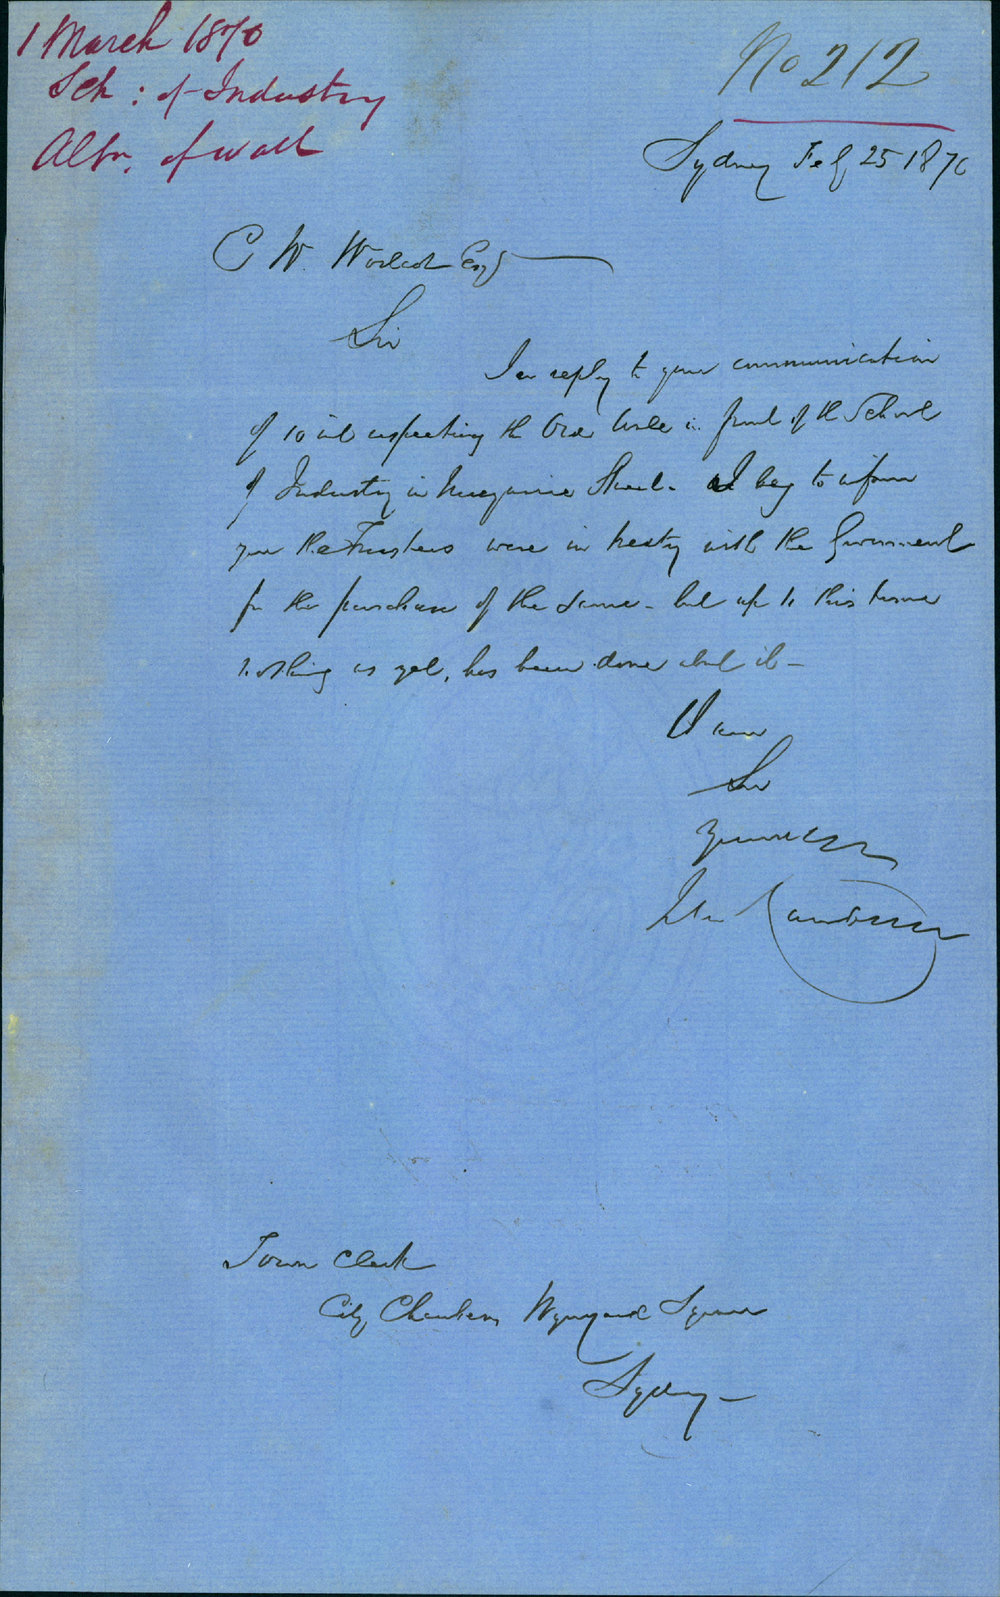 1 March 1870
Sch: of Industry
Altn. of wall
No 212
Sydney Feb 25 1870
C W. Woolcott Esq
Sir
In reply to your communication
of 10 inst respecting the Old Wall in front of the School
of Industry in Macquarie Street. I beg to inform
you the Trustees were in treaty with the Government
for the purchase of the same - but up to this time
nothing as yet, has been done about it -
I am
Sir
Yours
Town Clerk
City Chambers Wynyard Square
Sydney -